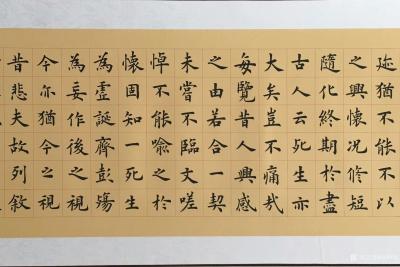 迹猶不能不以
之興懷況修短
隨化終期於盡
古人云死生亦
大矣豈不痛哉
每覽昔人興感
之由若合一契
未嘗不臨文嗟
悼不能喻之於
懷固知一死生
為虛誕齊彭殤
為妄作後之視
今亦猶今之視
昔悲夫故列敘